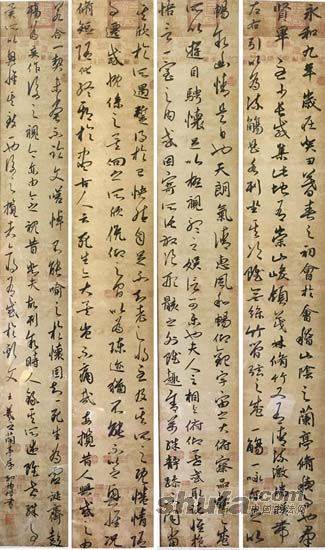 永和九年歲在癸丑暮春之初會於會稽山陰之蘭亭脩禊事也羣
賢畢至少長咸集此地有崇山峻領茂林脩竹又有清流激湍映帶
左右引以為流觴曲水列坐其次雖無絲竹管弦之盛一觴一詠亦足以
暢敘幽情是日也天朗氣清惠風和暢仰觀宇宙之大俯察品類之盛
所以遊目騁懷足以極視聽之娛信可樂也夫人之相與俯仰一世或取諸懷抱
悟言一室之內或因寄所託放浪形骸之外雖趣舍萬殊靜躁不同當
其欣於所遇暫得於己快然自足不知老之將至及其所之既惓情隨
事遷感慨係之矣向之所欣俛仰之間以為陳迹猶不能不以之興懷況
脩短隨化終期於盡古人云死生亦大矣豈不痛哉每攬昔人興感之由
若合一契未嘗不臨文嗟悼不能喻之於懷固知一死生為虛誕齊彭
殤為妄作後之視今亦由今之視昔悲夫故列敘時人錄其所述雖世殊
事異所以興懷其致一也後之攬者亦將有感於斯文 王羲之蘭亭序
shufa.com